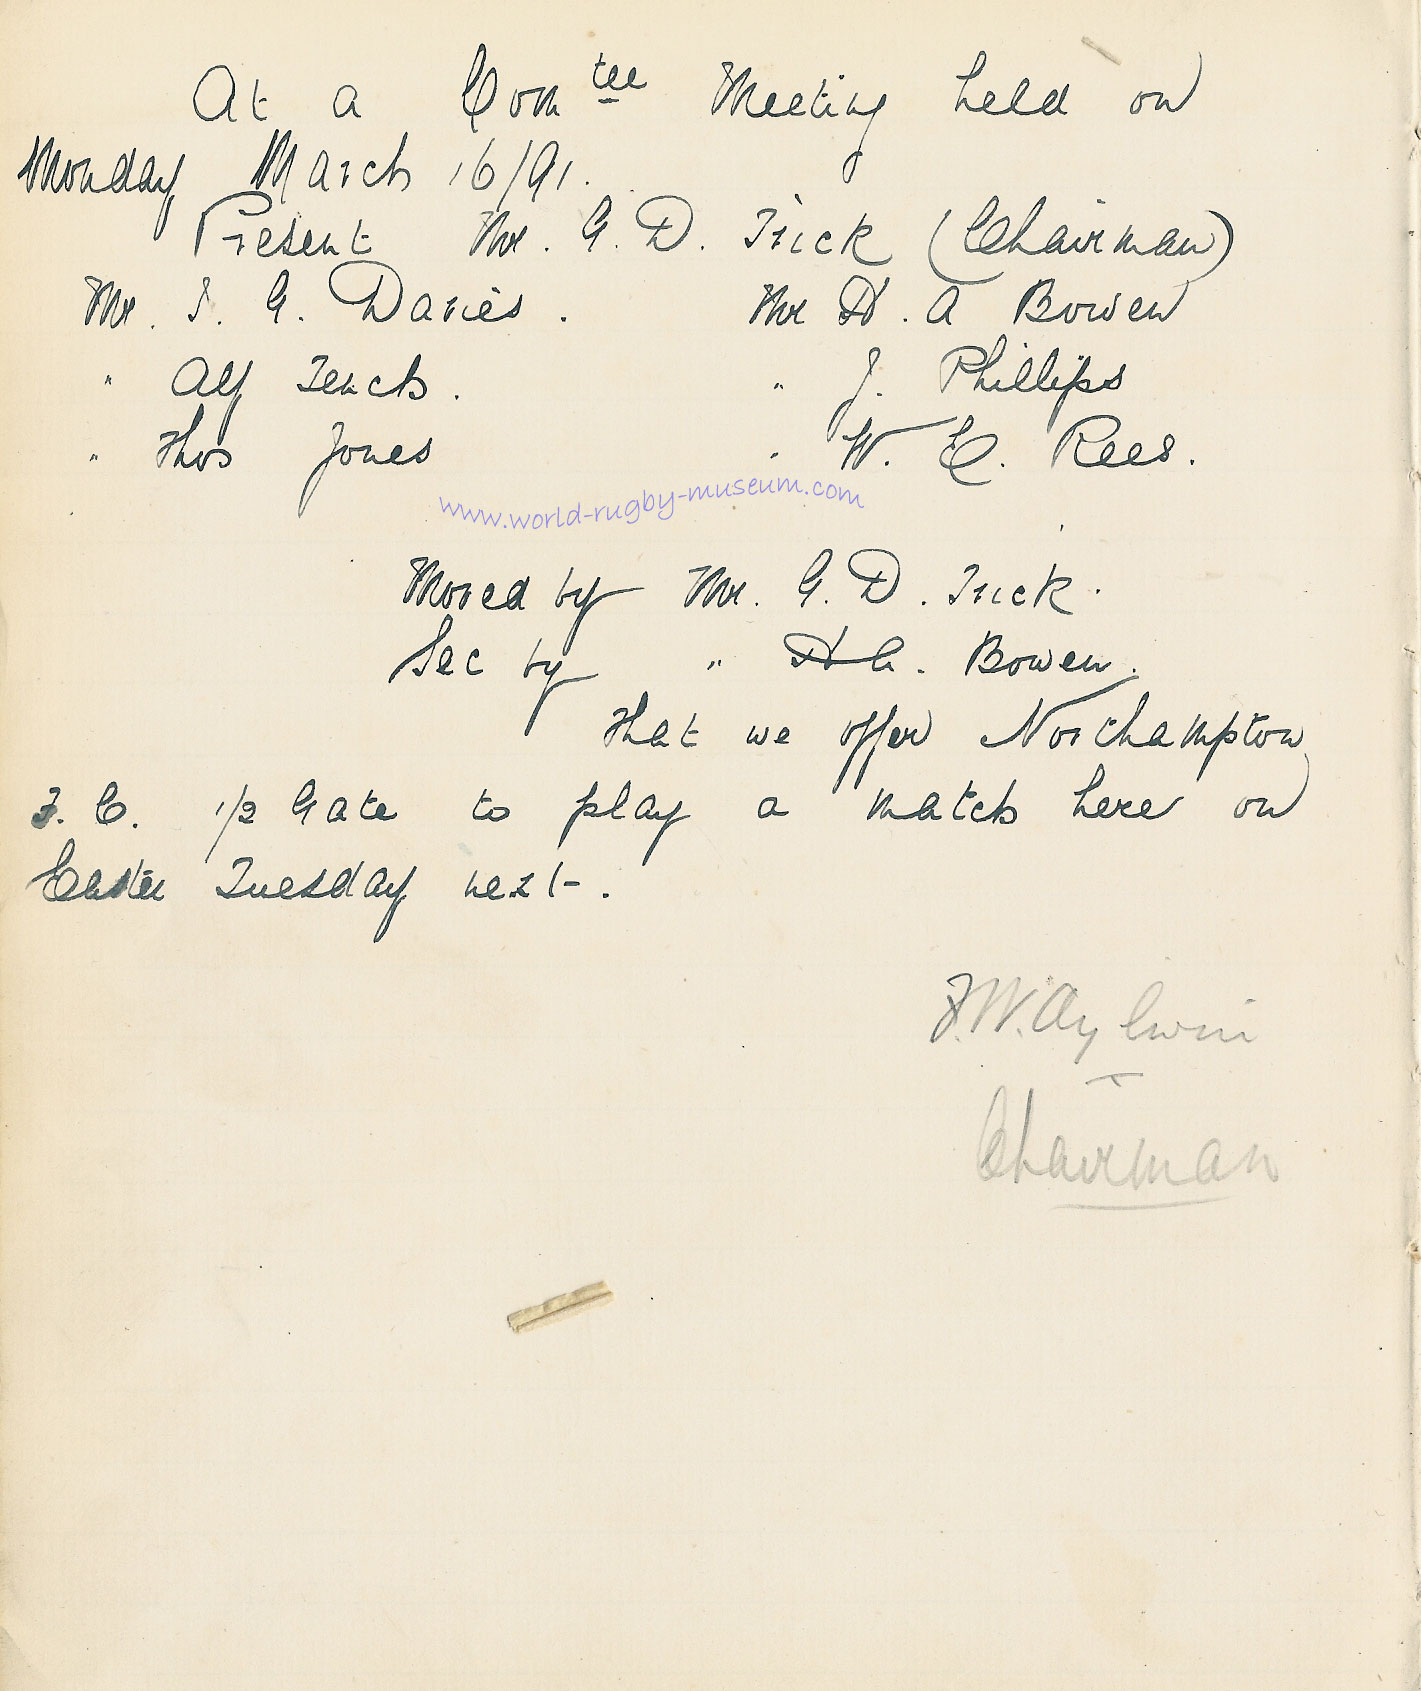 At a Comtee Meeting held on
Monday March 16/91.
Present Mr. G. D. Trick (Chairman)
Mr. T. G. Davies. Mr D. A Bowen
" Alf Tench. " J. Phillips
" Thos Jones " W. E. Rees.
www.world-rugby-museum.com
Moved by Mr. G. D. Trick.
Sec by " D A. Bowen.
that we offer Northampton
F. C. 1/2 Gate to play a match here on
Easter Tuesday next.
F. W. Aylwin
Chairman